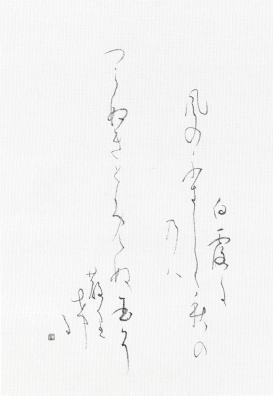 白露に
風の吹しく秋の
乃八
つらぬきとめぬ玉そ
散里
ける